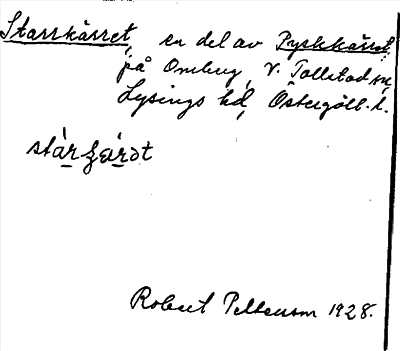 Starrkärret, en del av Pyskkärret,
på Omberg, V. Tollstad sn,
Lysings hd, Östergötl. l.
Robert Pettersson 1928.